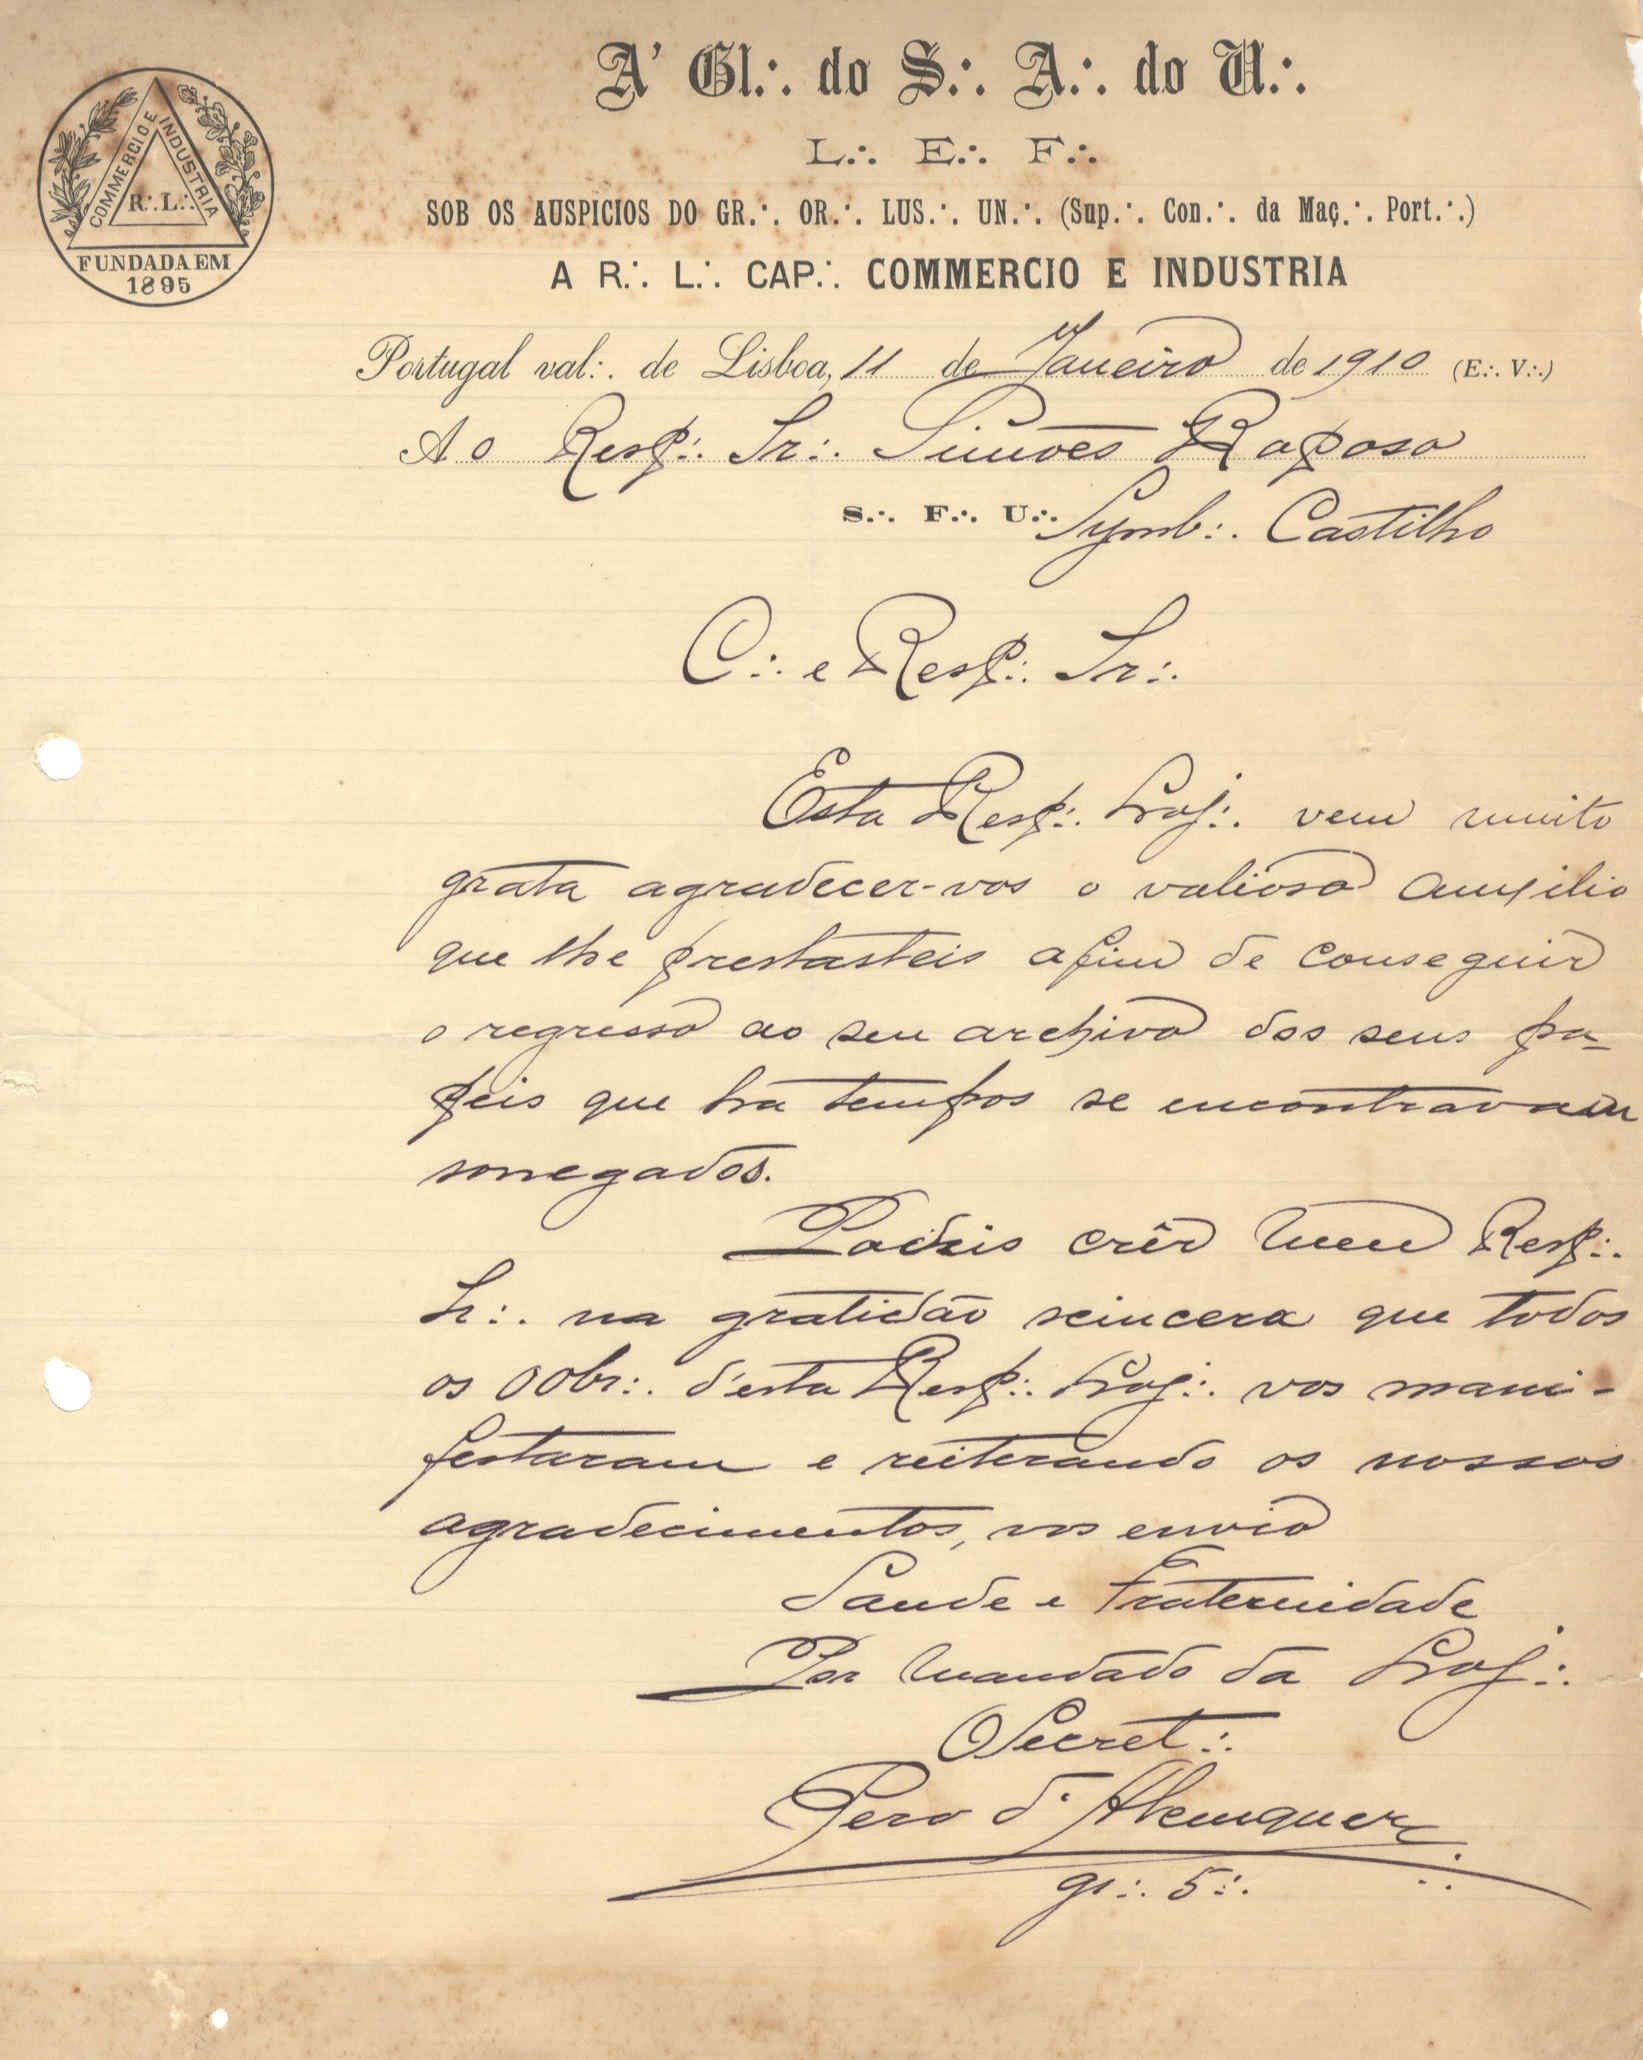 A' Gl.·. do S.·. A.·. do U.·.
L.·. E.·. F.·.
SOB OS AUSPICIOS DO GR.·. OR.·. LUS.·. UN.·. (Sup.·. Con.·. da Maç.·. Port.·.)
A R.·. L.·. CAP.·. COMMERCIO E INDUSTRIA
COMMERCIO E INDUSTRIA
R.·. L.·.
FUNDADA EM
1895
Portugal val.·. de Lisboa, 11 de Janeiro de 1910 (E.·. V.·.)
Ao Resp.·. Ir.·. Simões Raposo
S.·. F.·. U.·. Symb.·. Castilho
C.·. e Resp.·. Ir.·.
Esta Resp.·. Loj.·. vem muito
grata agradecer-vos o valioso auxilio
que lhe prestasteis afim de conseguir
o regresso ao seu archivo dos seus pa-
peis que ha tempos se encontravam
sonegados.
Podeis crêr meu Resp.·.
Ir.·. na gratidão scincera que todos
os OObr.·. d'esta Resp.·. Loj.·. vos mani-
festaram e reiterando os nossos
agradecimentos, vos envio
Saude e Fraternidade
Por mandado da Loj.·.
O Secret.·.
Pero d'Alemquer
gr.·. 5.·.